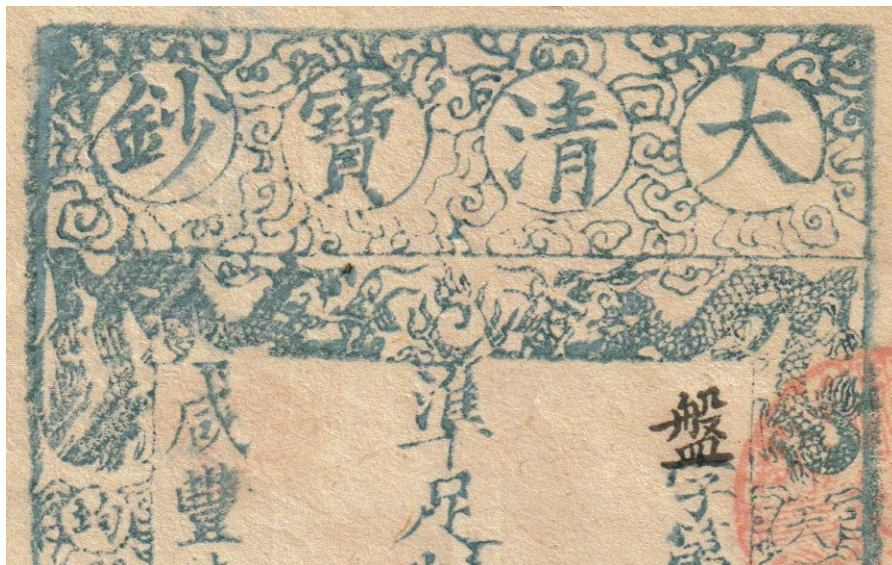 大清寶鈔
盤字第
準足
咸豐
天
均